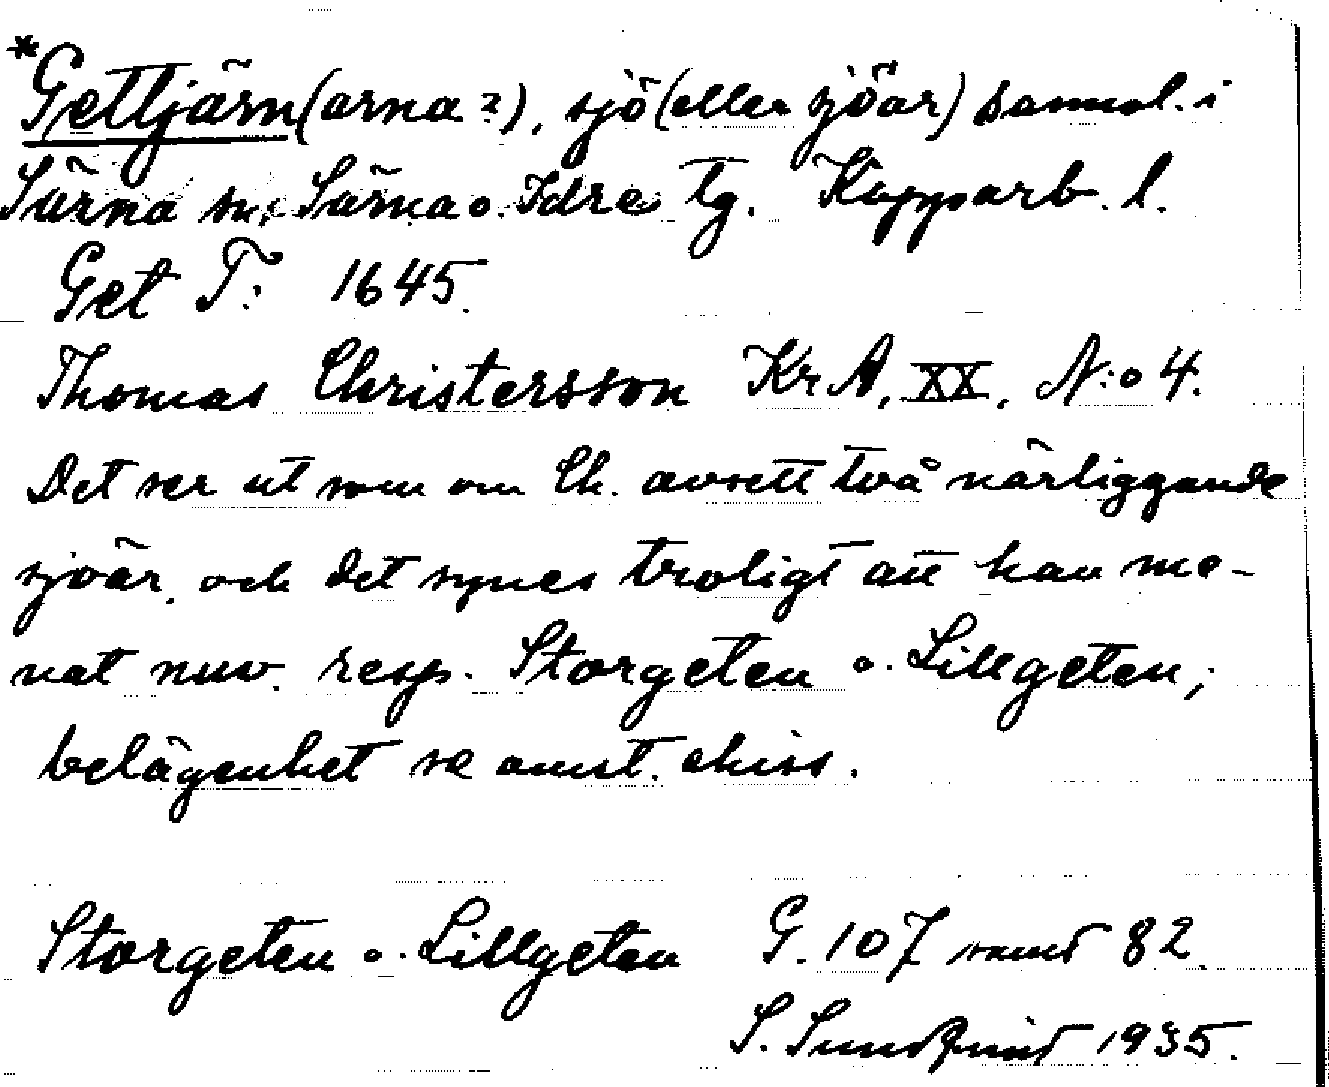 *Gettjärn(arna?), sjö (eller sjöar) sannol. i
Särna sn, Särna o. Idre tg. Kopparb. l.
Get T: 1645.
Thomas Christersson Kr A, XX, N:o 4.
Det ser ut som om Ch. avsett två närliggande
sjöar, och det synes troligt att han me-
nat nuv. resp. Storgeten o. Lillgeten,
belägenhet se omst. skiss.
Storgeten o. Lillgeten G. 107 samt 82.
S. Sundqvist 1935.